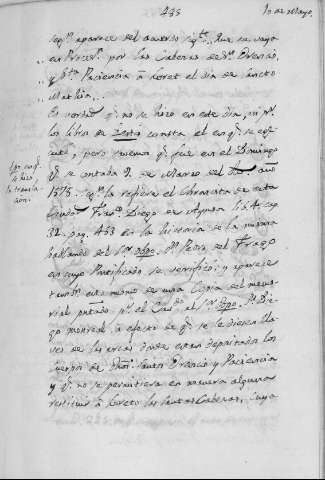 435
10 de Mayo.
segn. aparece del acuerdo sigte. Que se vaya
en Process. por las Cabezas de Sn. Orencio,
y Sta. Paciencia a Loret el dia de Sancto
Mathia.
Es verdad q. no se hizo en este dia, ni pr.
los libros de Gesta consta el en q. se efe-
ctuó, pero sabemos q. fue en el Domingo
q. se contaba 9. de Marzo del año
1575. segn. lo refiere el Chronista de esta
Ciudad Franco. Diego de Aynsa lib. 4. cap.
32. pag. 453 en la historia de la misma
hablando del Sr. Obpo. Dn. Pedro del Frago
en cuyo Pontificado se verificó; y aparece
tambn. esto mismo de una Copia del memo-
rial puntado pr. el Sr. Obpo. Dn. Die-
go Monreal a efecto de q. se le diesen lla-
ves de las arcas donde estan depositados los
cuerpos de los Santos Orencio y Paciencia
y q. no se permitiera en manera alguna
restituir a Loreto las Santas Cabezas, Cuya
Año en q.
se hizo
la transla-
cion.